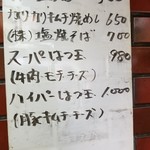 カリカリキムチ焼めし 650
(株)塩焼そば 700
スーパーはつ玉 980
(牛肉モチチーズ)
ハイパーはつ玉 1,000
(豚キムチチーズ)